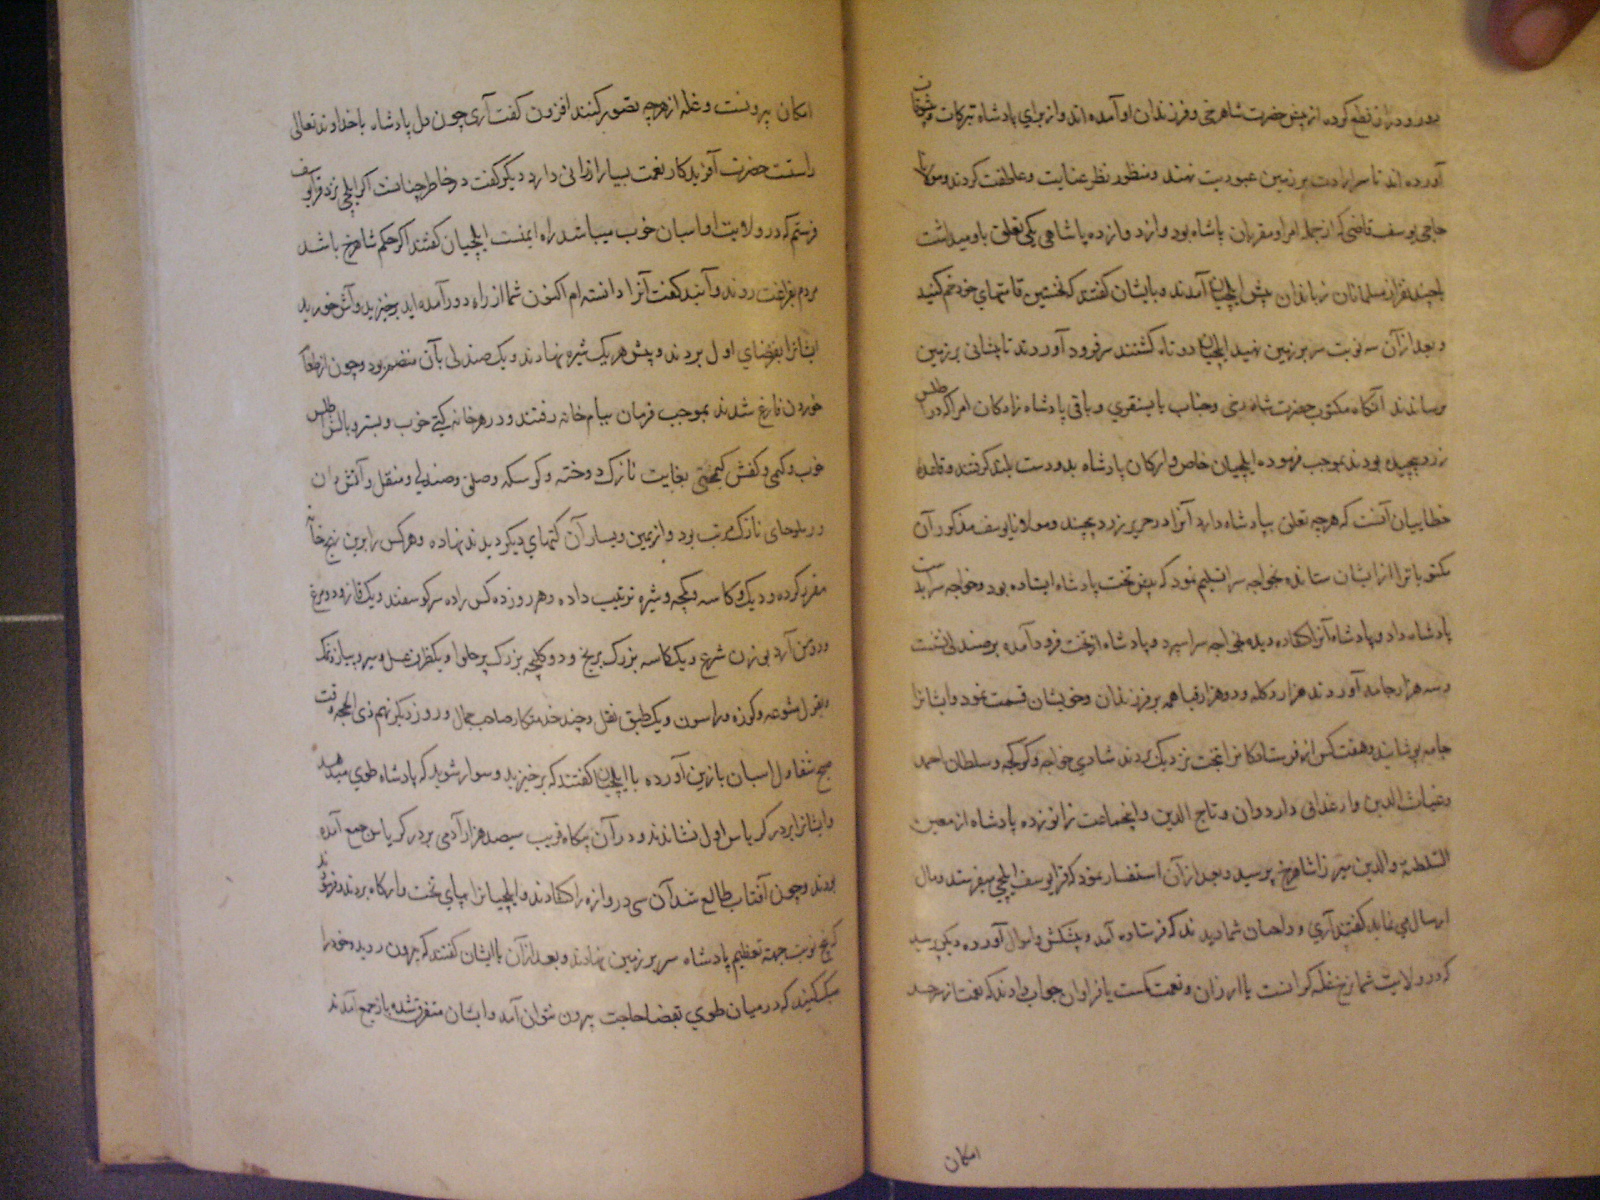 دور و دراز قطع کرده از پیش حضرت شاهرخی و فرزندان او آمده اند و از برای پادشاه تبرکات و پیشکشان
آورده اند تا سر ارادت بر زمین عبودیت نهند و منظور نظر عنایت و عاطفت کردند و مولانا
حاجی یوسف قاضی که از جمله امرا و مقربان پادشاه بود و از دوازده پادشاهی یکی تعلق باو میداشت
با چند نفر از مسلمانان زباندان پیش ایلچیان آمدند و بایشان گفتند که نخستین قامتهای خود خم کنید
و بعد از آن سه نوبت سر بر زمین نهید ایلچیان دوتاه گشتند سر فرود آوردند تا پشانی بر زمین
رساندند آنگاه مکتوب حضرت شاه رخی و جناب بایسنقری و باقی پادشاه زادگان امرا که در اطلس
زرد پیچیده بودند بموجب فرموده ایلچیان خاص و ارکان پادشاه بدو دست بلند گرفتند و قاعده
خطاییان آنست که هرچه تعلق بپادشاه دارد آنرا در حریر زرد پیچند و مولانا یوسف مذکور آن
مکتوباترا از ایشان ستانده بخواجه سرا تسلیم نمود که پیش تخت پادشاه ایستاده بود و خواجه سرا بدست
پادشاه داد و پادشاه آنرا گشاده دیده بخواجه سرا سپرد و پادشاه از تخت فرود آمده بر صندلی نشست
و سه هزار جامه آوردند هزار دکله و دو هزار قبا همه بر فرزندان و خویشان قسمت نمود و ایشانرا
جامه پوشانید و هفت کس از فرستادکانرا بتخت نزدیک بردند شادی خواجه و کوکجه و سلطان احمد
و غیاث الدین و ارغداق و اردوان و تاج الدین و اینجماعت زانو زده پادشاه از معین
السلطنه والدین میرزا شاهرخ پرسید و بعد از آن استفسار نمود که قرا یوسف ایلچی میفرستد و مال
ارسال می نماید گفتند آری و داجیان شما دیدند که فرستاده آمد و پیشکش و اموال آورده دیگر پرسید
که در ولایت شما نرخ غله گرانست یا ارزان و نعمت کمست یا فراوان جواب دادند که نعمت از سرحد
امکان
امکان بیرونست و غله از هرچه تصور کنند افزون گفت آری چون دل پادشاه با خداوند تعالی
راستست حضرت آفریدکار نعمت بسیار ارزانی دارد دیگر گفت در خاطر چنانست که ایلچی نزد قرا یوسف
فرستم که در ولایت او اسبان خوب میباشد راه ایمنست ایلچیان گفتند اگر حکم شاهرخ باشد
مردم بفراغت روند و آیند گفت آنرا دانسته ام اکنون شما از راه دور آمده اید برخیزید و آش خورید
ایشانرا بفضای اول بردند و پیش هر یک شیره نهادند و یک صندلی بآن منضم بود و چون از طعام
خوردن فارغ شدند بموجب فرمان بیام خانه رفتند و در هر خانه کتی خوب و بستر و بالش اطلس
خوب و کمی و کفش کیمختی بغایت نازک دوخته و کوسکه و صلی و صندلی و منقل و آتش دان
و بر یلوحای نازک مرتب بود و از یمین و یسار آن کتهای دیگر دیدند نهاده و هر کس را برین نهج خانه
مقرر کرده و دیگ و کاسه و کمچه و شیره ترتیب داده و هر روز ده کس را ده سر گوسفند و یک قاز و دو مرغ
و دو من آرد بوزن شرع و یک کاسه بزرگ برنج و دو کلیچه بزرگ پر حلوا و یک ظرف عسل و سیر و پیاز و نمک
و بقول متنوعه و کوزه دراسون و یک طبق نقل و چند خدمتکار صاحب جمال و روز دیگر نهم ذی الحجه وقت
صبح شقاول اسبان با زین آورده با ایلچیان گفتند که برخیزید و سوار شوید که پادشاه طوی میدهد
و ایشانرا بر در کریاس اول نشاندند و در آن پکاه قریب سیصد هزار آدمی بر در کریاس جمع آمده
بودند و چون آفتاب طالع شد آن سی دروازه را گشادند و ایلچیانرا بپای تخت وارکاه بردند و فرمودند
که پنج نوبت جهة تعظیم پادشاه سر بر زمین نهادند و بعد از آن با ایشان گفتند که بیرون روید و خود را
سبک کنید که در میان طوی بقضا حاجت بیرون نتوان آمد و ایشان متفرق شده باز جمع آمدند